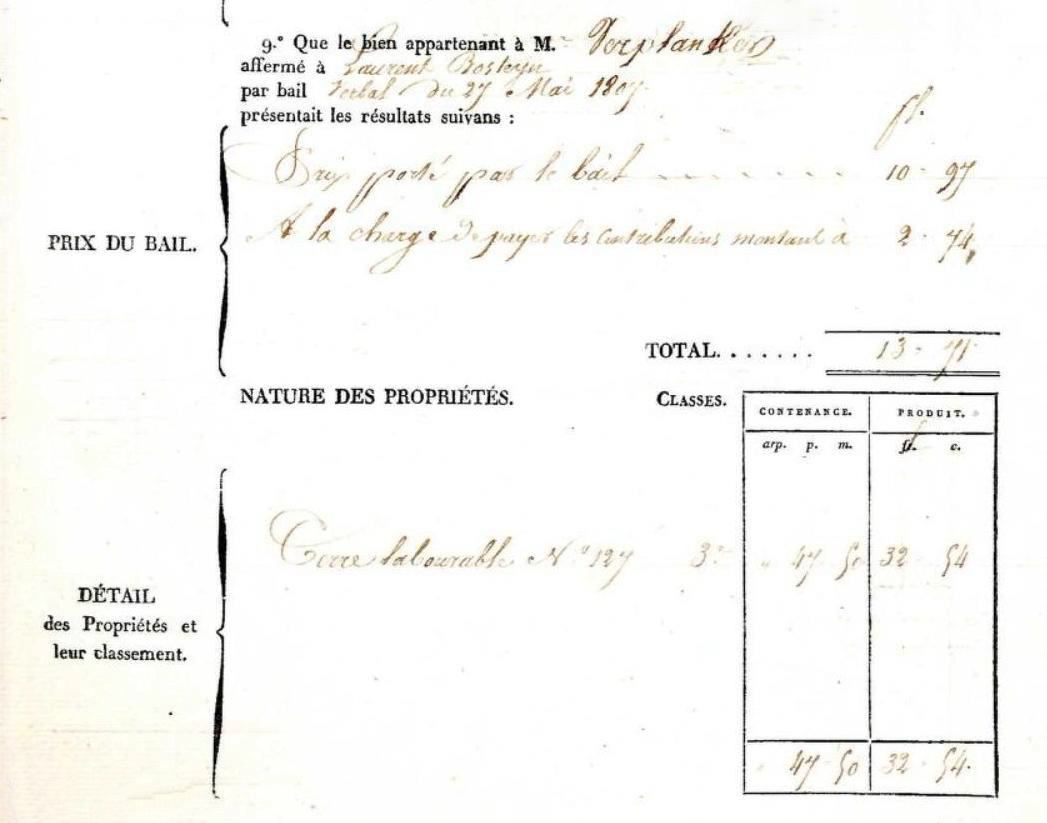 9.° Que le bien appartenant à M.r Verplanken
affermé à Laurent Bosteyn
par bail Verbal du 27 Mai 1807.
présentait les résultats suivans :
fl.
Prix porté par le bail 10 - 97
PRIX DU BAIL.
A la charge de payer les contributions montant à 2 - 74,
TOTAL. . . . . . . 13 - 71
NATURE DES PROPRIÉTÉS. CLASSES. CONTENANCE. PRODUIT.
arp. p. m. fl. c.
Terre labourable N.° 127 3.e " 47 50 32 54
DÉTAIL
des Propriétés et
leur classement.
47 50 32 54.